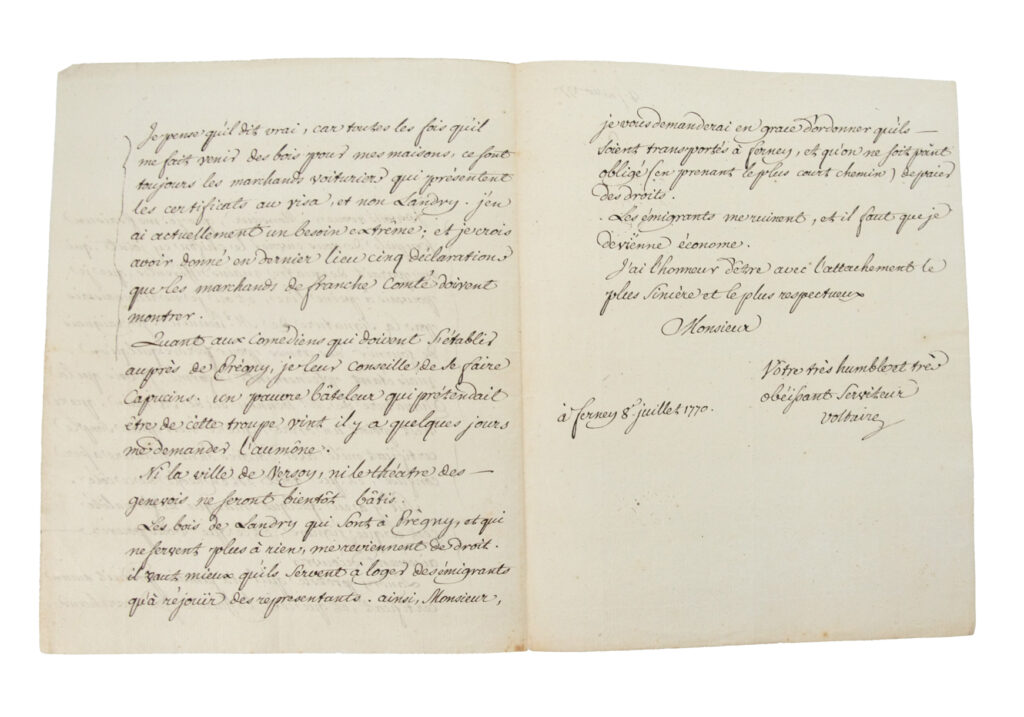 Je pense qu'il dit vrai, car toutes les fois qu'il
me fait venir des bois pour mes maisons, ce sont
toujours les marchands voituriers qui présentent
les certificats au visa, et non Landry. j'en
ai actuellement un besoin extrême; et je crois
avoir donné en dernier lieu cinq déclarations
que les marchands de franche Comté doivent
montrer.
Quant aux comédiens qui doivent s'établir
auprès de Prégny, je leur conseille de se faire
Capucins. un pauvre bâteleur qui prétendait
être de cette troupe vint il y a quelques jours
me demander l'aumône.
Ni la ville de Versoy, ni le théatre des —
genevois ne seront bientôt bâtis.
Les bois de Landry qui sont à Prêgny, et qui
ne servent plus à rien, me reviennent de droit.
il vaut mieux qu'ils servent à loger des émigrants
qu'à réjouïr des représentants. ainsi, Monsieur,
je vous demanderai en grace d'ordonner qu'ils —
soient transportés à ferney, et qu'on ne soit point
obligé (en prenant le plus court chemin) de paier
des droits.
Les émigrants me ruinent, et il faut que je
devienne économe.
J'ai l'honneur d'être avec l'attachement le
plus sincère et le plus respectueux
Monsieur
Vôtre très humble et très
obéissant serviteur
à ferney 8e juillet 1770.
Voltaire